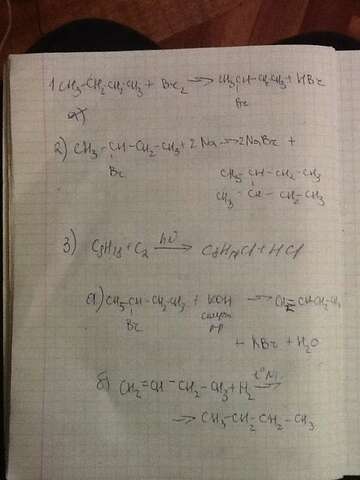 1 CH3-CH2CH2CH3 + Br2 → CH3CH-CH2CH3 + HBr
Br
а)
2) CH3-CH-CH2-CH3 + 2Na → 2NaBr +
Br
CH3-CH-CH2-CH3
CH3-CH-CH2-CH3
3) C8H18 + C2 hν → C8H17Cl + HCl
а) CH3-CH-CH2-CH3 + KOH → CH2=CHCH2CH3
Br
р-р
+ KBr + H2O
б) CH2=CH-CH2-CH3 + H2 t°Ni →
→ CH3-CH2-CH2-CH3